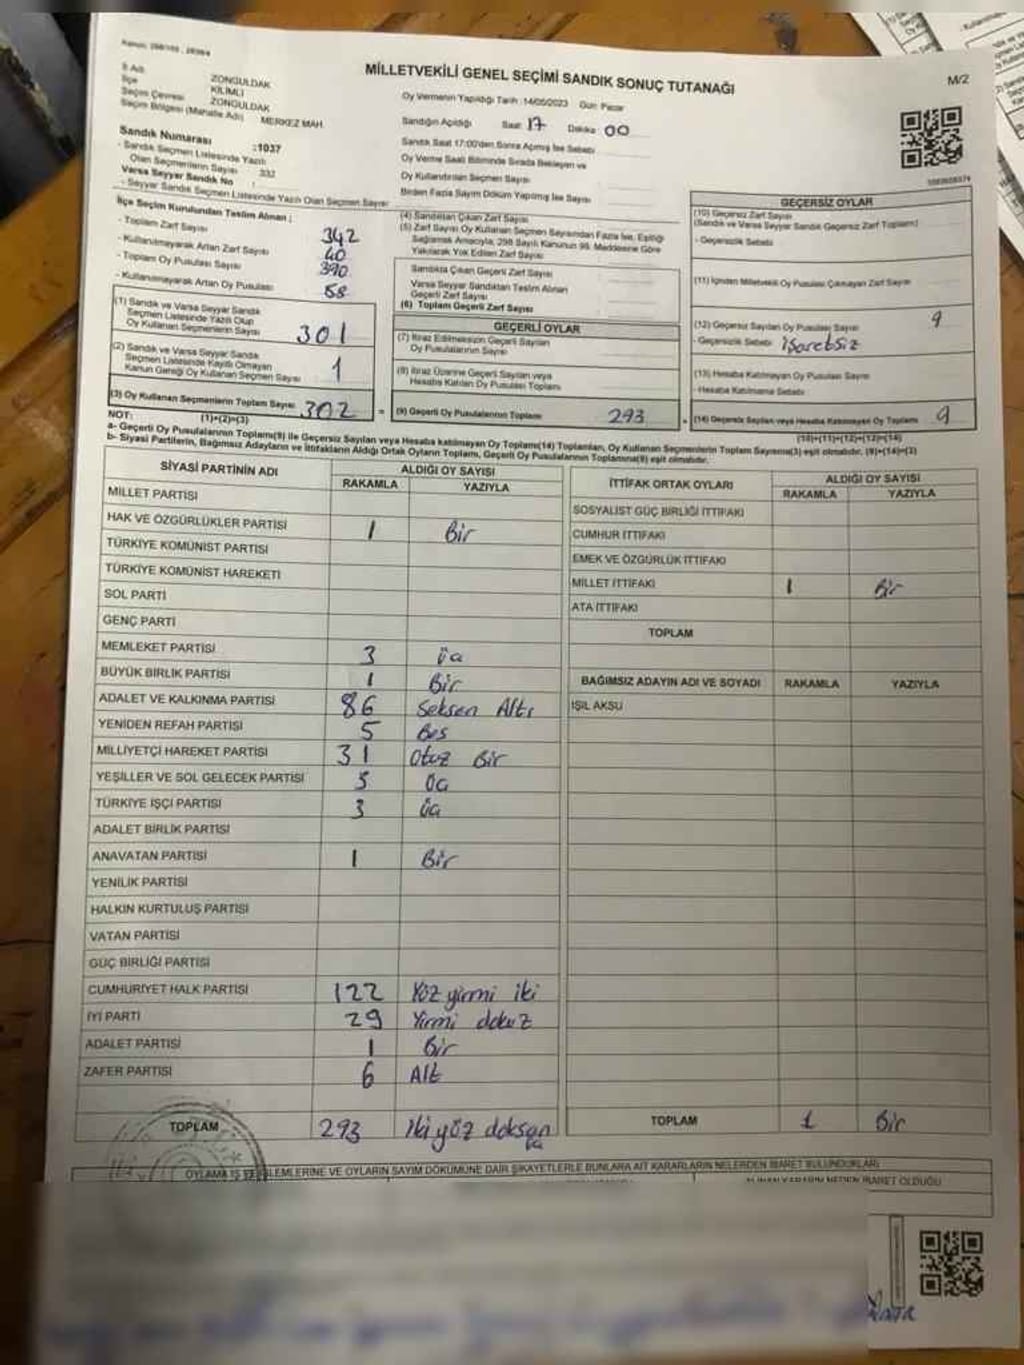 MİLLETVEKİLİ GENEL SEÇİMİ SANDIK SONUÇ TUTANAĞI
M/2
İl Adı ZONGULDAK
İlçe KİLİMLİ
Seçim Çevresi ZONGULDAK
Seçim Bölgesi (Mahalle Adı) MERKEZ MAH.
Sandık Numarası :1037
- Sandık Seçmen Listesinde Yazılı Olan Seçmenlerin Sayısı 332
Varsa Seyyar Sandık No :
- Seyyar Sandık Seçmen Listesinde Yazılı Olan Seçmen Sayısı
Oy Vermenin Yapıldığı Tarih :14/05/2023 Gün: Pazar
Sandığın Açıldığı Saat 17 Dakika 00
Sandık Saat 17:00'den Sonra Açılmış İse Sebebi
Oy Verme Saati Bitiminde Sırada Bekleyen ve
Oy Kullandırılan Seçmen Sayısı
Birden Fazla Sayım Döküm Yapılmış İse Sayısı
İlçe Seçim Kurulundan Teslim Alınan :
- Toplam Zarf Sayısı 342
- Kullanılmayarak Artan Zarf Sayısı 40
- Toplam Oy Pusulası Sayısı 390
- Kullanılmayarak Artan Oy Pusulası 88
(1) Sandık ve Varsa Seyyar Sandık
Seçmen Listesinde Yazılı Olup
Oy Kullanan Seçmenlerin Sayısı 301
(2) Sandık ve Varsa Seyyar Sandık
Seçmen Listesinde Kayıtlı Olmayan
Kanun Gereği Oy Kullanan Seçmen Sayısı 1
(3) Oy Kullanan Seçmenlerin Toplam Sayısı 302
(1)+(2)=(3)
(4) Sandıktan Çıkan Zarf Sayısı
(5) Zarf Sayısı Oy Kullanan Seçmen Sayısından Fazla İse, Eşitliği
Sağlamak Amacıyla, 298 Sayılı Kanunun 98. Maddesine Göre
Yakılarak Yok Edilen Zarf Sayısı
Sandıkta Çıkan Geçerli Zarf Sayısı
Varsa Seyyar Sandıktan Teslim Alınan
Geçerli Zarf Sayısı
(6) Toplam Geçerli Zarf Sayısı
GEÇERLİ OYLAR
(7) İtiraz Edilmeksizin Geçerli Sayılan
Oy Pusulalarının Sayısı
(8) İtiraz Üzerine Geçerli Sayılan veya
Hesaba Katılan Oy Pusulası Toplamı
= (9) Geçerli Oy Pusulalarının Toplamı 293
GEÇERSİZ OYLAR
(10) Geçersiz Zarf Sayısı
(Sandık ve Varsa Seyyar Sandık Geçersiz Zarf Toplamı)
- Geçersizlik Sebebi
(11) İçinden Milletvekili Oy Pusulası Çıkmayan Zarf Sayısı
(12) Geçersiz Sayılan Oy Pusulası Sayısı 9
- Geçersizlik Sebebi işaretsiz
(13) Hesaba Katılmayan Oy Pusulası Sayısı
- Hesaba Katılmama Sebebi
(14) Geçersiz Sayılan veya Hesaba Katılmayan Oy Toplamı 9
(10)+(11)+(12)+(13)=(14)
NOT:
a- Geçerli Oy Pusulalarının Toplamı(9) ile Geçersiz Sayılan veya Hesaba katılmayan Oy Toplamı(14) Toplamları, Oy Kullanan Seçmenlerin Toplam Sayısına(3) eşit olmalıdır. (9)+(14)=(3)
b- Siyasi Partilerin, Bağımsız Adayların ve İttifakların Aldığı Ortak Oyların Toplamı, Geçerli Oy Pusulalarının Toplamına(9) eşit olmalıdır.
SİYASİ PARTİNİN ADI ALDIĞI OY SAYISI
RAKAMLA YAZIYLA
MİLLET PARTİSİ
HAK VE ÖZGÜRLÜKLER PARTİSİ 1 Bir
TÜRKİYE KOMÜNİST PARTİSİ
TÜRKİYE KOMÜNİST HAREKETİ
SOL PARTİ
GENÇ PARTİ
MEMLEKET PARTİSİ 3 üç
BÜYÜK BİRLİK PARTİSİ 1 Bir
ADALET VE KALKINMA PARTİSİ 86 Seksen Altı
YENİDEN REFAH PARTİSİ 5 Beş
MİLLİYETÇİ HAREKET PARTİSİ 31 Otuz Bir
YEŞİLLER VE SOL GELECEK PARTİSİ 3 Üç
TÜRKİYE İŞÇİ PARTİSİ 3 üç
ADALET BİRLİK PARTİSİ
ANAVATAN PARTİSİ 1 Bir
YENİLİK PARTİSİ
HALKIN KURTULUŞ PARTİSİ
VATAN PARTİSİ
GÜÇ BİRLİĞİ PARTİSİ
CUMHURİYET HALK PARTİSİ 122 Yüz yirmi iki
İYİ PARTİ 29 Yirmi dokuz
ADALET PARTİSİ 1 Bir
ZAFER PARTİSİ 6 Altı
TOPLAM 293 iki yüz doksan üç
İTTİFAK ORTAK OYLARI ALDIĞI OY SAYISI
RAKAMLA YAZIYLA
SOSYALİST GÜÇ BİRLİĞİ İTTİFAKI
CUMHUR İTTİFAKI
EMEK VE ÖZGÜRLÜK İTTİFAKI
MİLLET İTTİFAKI 1 Bir
ATA İTTİFAKI
TOPLAM
BAĞIMSIZ ADAYIN ADI VE SOYADI RAKAMLA YAZIYLA
IŞIL AKSU
TOPLAM 1 Bir
OYLAMA İŞ VE İŞLEMLERİNE VE OYLARIN SAYIM DÖKÜMÜNE DAİR ŞİKAYETLERLE BUNLARA AİT KARARLARIN NELERDEN İBARET BULUNDUKLARI
ALINAN KARARIN NEDEN İBARET OLDUĞU